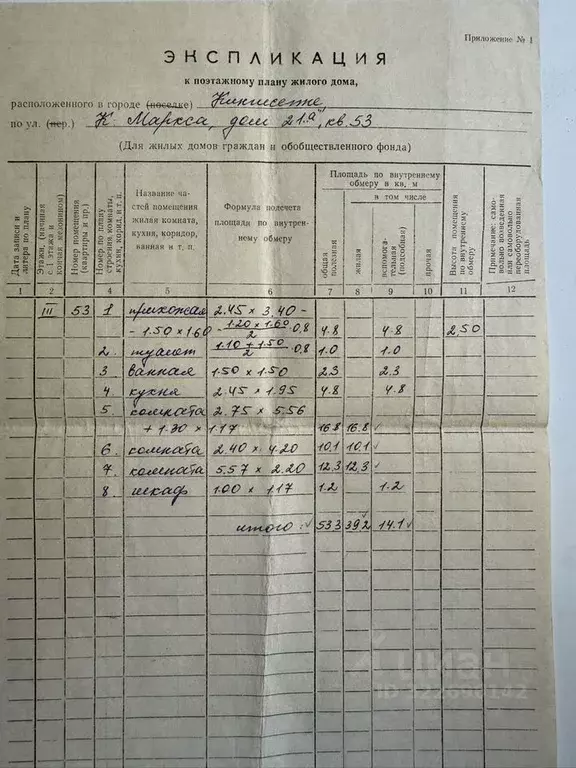 Приложение № 1
ЭКСПЛИКАЦИЯ
к поэтажному плану жилого дома,
расположенного в городе (поселке) Кингисеппе,
по ул. (пер.) К. Маркса, дом 21 "а", кв. 53
(Для жилых домов граждан и обобществленного фонда)
Дата записи и литера по плану
Этажи, (начиная с 1 этажа и кончая мезонином)
Номер помещения (квартиры и пр.)
Номер по плану строения, комнаты, кухни, корид. и т. п.
Название частей помещения жилая комната, кухня, коридор, ванная и т. п.
Формула подсчета площади по внутреннему обмеру
Площадь по внутреннему обмеру в кв. м
в том числе
общая полезная
жилая
вспомогательная (подсобная)
прочая
Высота помещения по внутреннему обмеру
Примечание: самовольно возведенная или самовольно переоборудованная площадь
1 2 3 4 5 6 7 8 9 10 11 12
III 53 1 прихожая 2.45 × 3.40 -
- 1.50 × 1.60 - 1.20 × 1.60 / 2 · 0,8 4.8 4.8 2,50
2. туалет 1.10 + 1.50 / 2 · 0,8 1.0 1.0
3 ванная 1.50 × 1.50 2.3 2.3
4. кухня 2.45 × 1.95 4.8 4.8
5. комната 2.75 × 5.56
+ 1.30 × 1.17 16.8 16.8
6. комната 2.40 × 4.20 10.1 10.1
7. комната 5.57 × 2.20 12.3 12,3
8 шкаф 1.00 × 1.17 1.2 1.2
итого: 53.3 39.2 14.1
циан